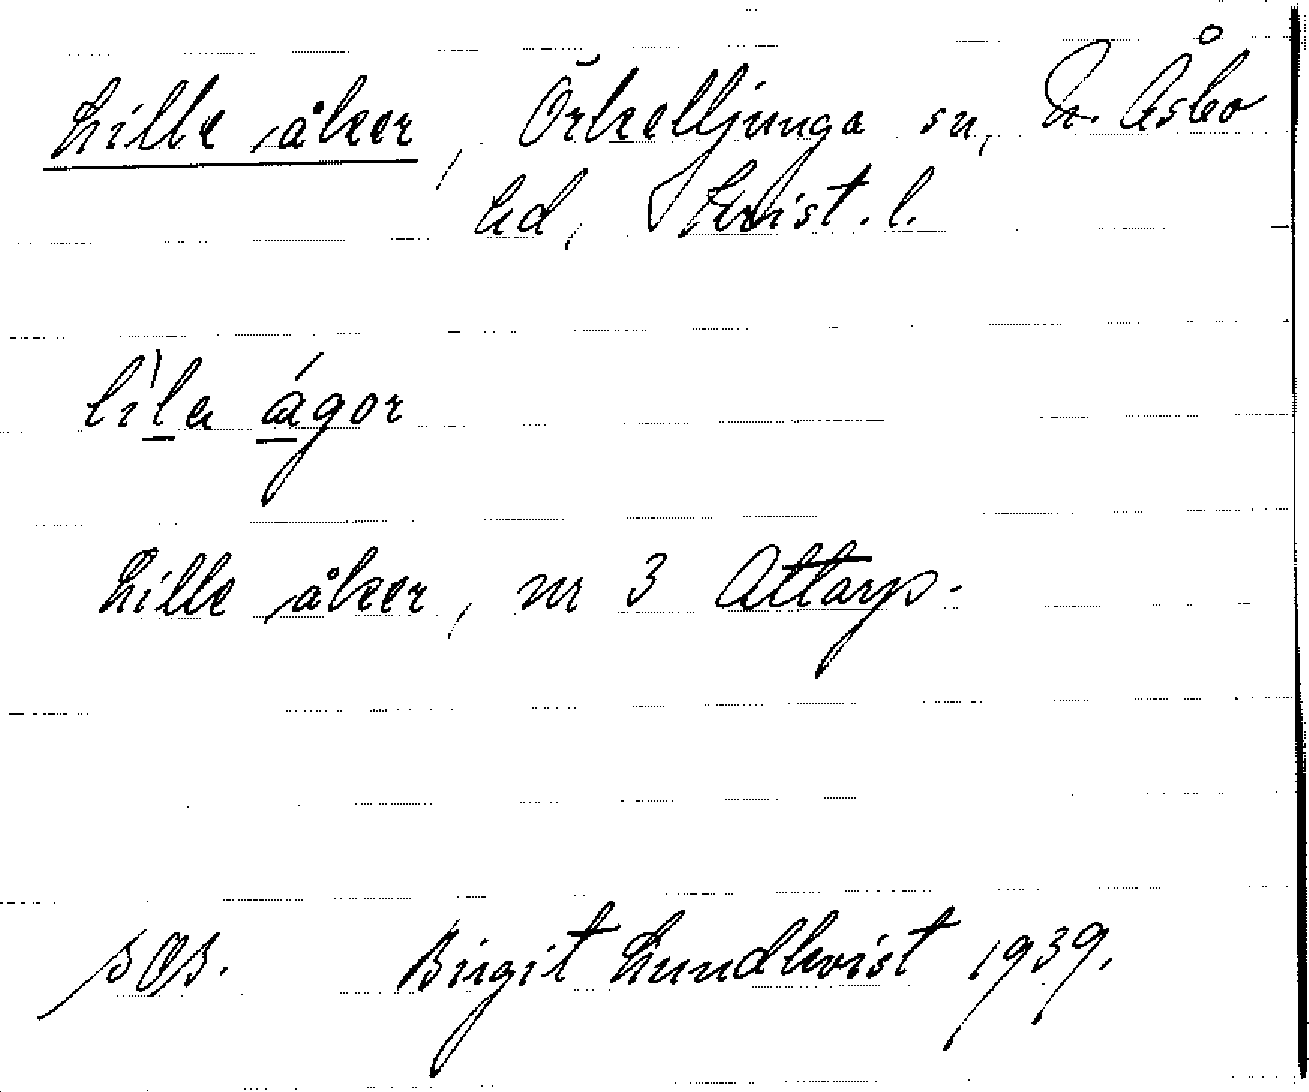 Lille åker, Örkelljunga sn, N. Åsbo
hd, Krist. l.
lìla ágor
Lille åker, nr 3 Attarp.
Birgit Lundkvist 1939.